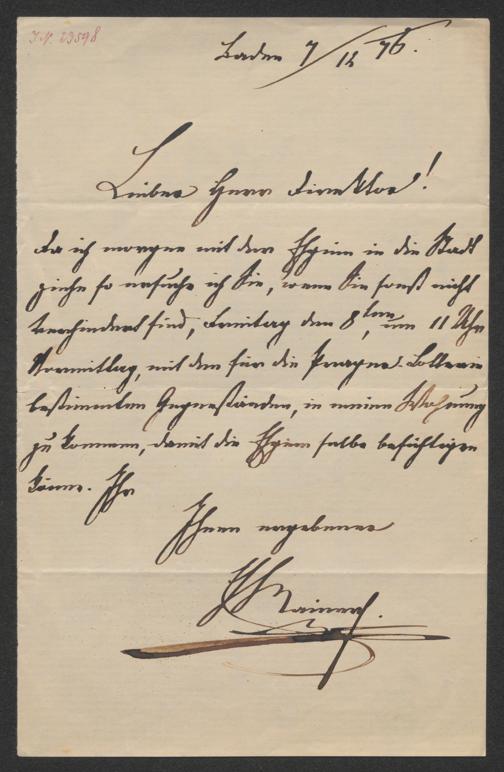 J.N. 23598
Baden 7/12 76.
Lieber Herr Direktor!
Da ich morgen mit der Ehzgin in die Stadt
ziehe so ersuche ich Sie, wenn Sie sonst nicht
verhindert sind, Freitag den 8ten, um 11 Uhr
Vormittag, mit den für die Prager-Lotterie
bestimmten Gegenständen, in meine Wohnung
zu kommen, damit die Ehzgin selbe besichtigen
könne. Ihr
Ihnen ergebener
EH Rainer.